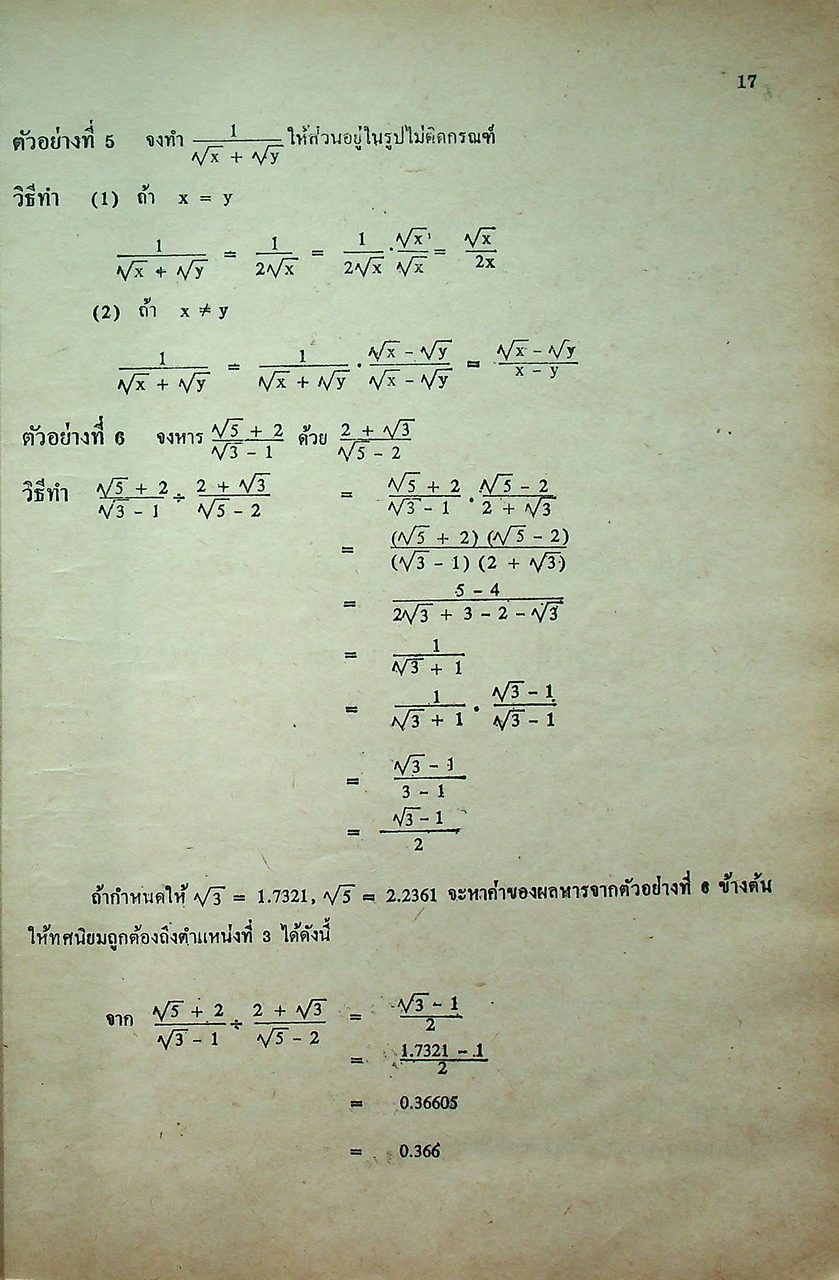 17
ตัวอย่างที่ 5 จงทำ 1/(√x + √y) ให้ส่วนอยู่ในรูปไม่ติดกรณฑ์
วิธีทำ (1) ถ้า x = y
1/(√x + √y) = 1/(2√x) = 1/(2√x) · √x/√x = √x/2x
(2) ถ้า x ≠ y
1/(√x + √y) = 1/(√x + √y) · (√x - √y)/(√x - √y) = (√x - √y)/(x - y)
ตัวอย่างที่ 6 จงหาร (√5 + 2)/(√3 - 1) ด้วย (2 + √3)/(√5 - 2)
วิธีทำ (√5 + 2)/(√3 - 1) ÷ (2 + √3)/(√5 - 2) = (√5 + 2)/(√3 - 1) · (√5 - 2)/(2 + √3)
= (√5 + 2) (√5 - 2)/(√3 - 1) (2 + √3)
= (5 - 4)/(2√3 + 3 - 2 - √3)
= 1/(√3 + 1)
= 1/(√3 + 1) · (√3 - 1)/(√3 - 1)
= (√3 - 1)/(3 - 1)
= (√3 - 1)/2
ถ้ากำหนดให้ √3 = 1.7321, √5 = 2.2361 จะหาค่าของผลหารจากตัวอย่างที่ 6 ข้างต้น
ให้ทศนิยมถูกต้องถึงตำแหน่งที่ 3 ได้ดังนี้
จาก (√5 + 2)/(√3 - 1) ÷ (2 + √3)/(√5 - 2) = (√3 - 1)/2
= (1.7321 - 1)/2
= 0.36605
= 0.366